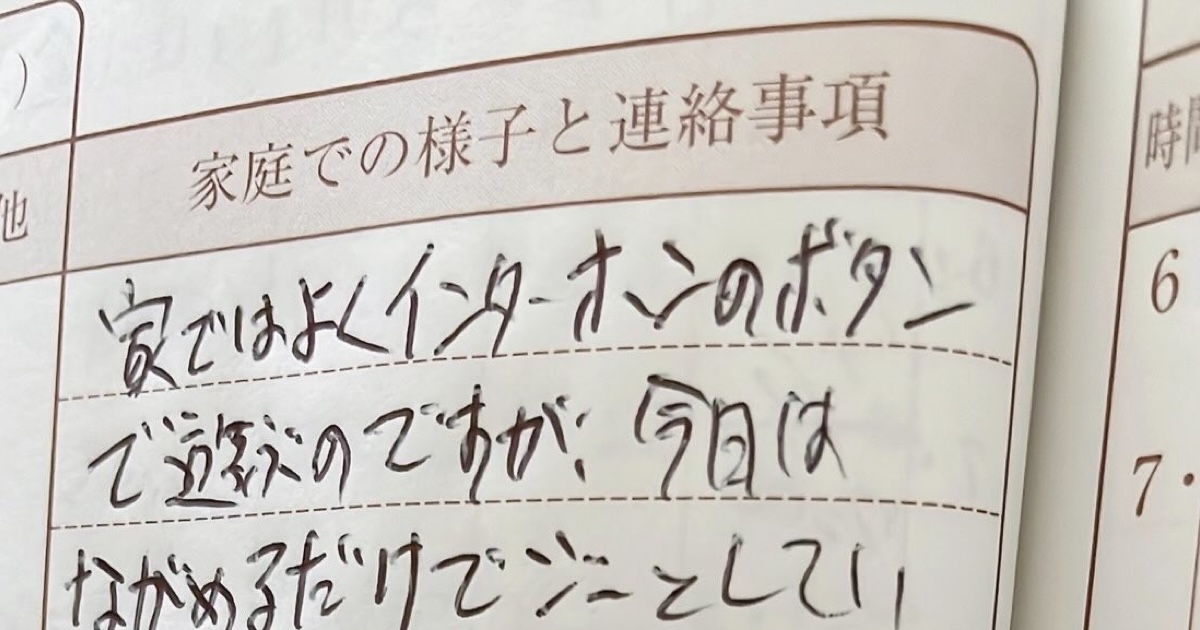 )
他
家庭での様子と連絡事項
家ではよくインターホンのボタン
で遊ぶのですが、今日は
ながめるだけでジーとしてい
時間
6
7・